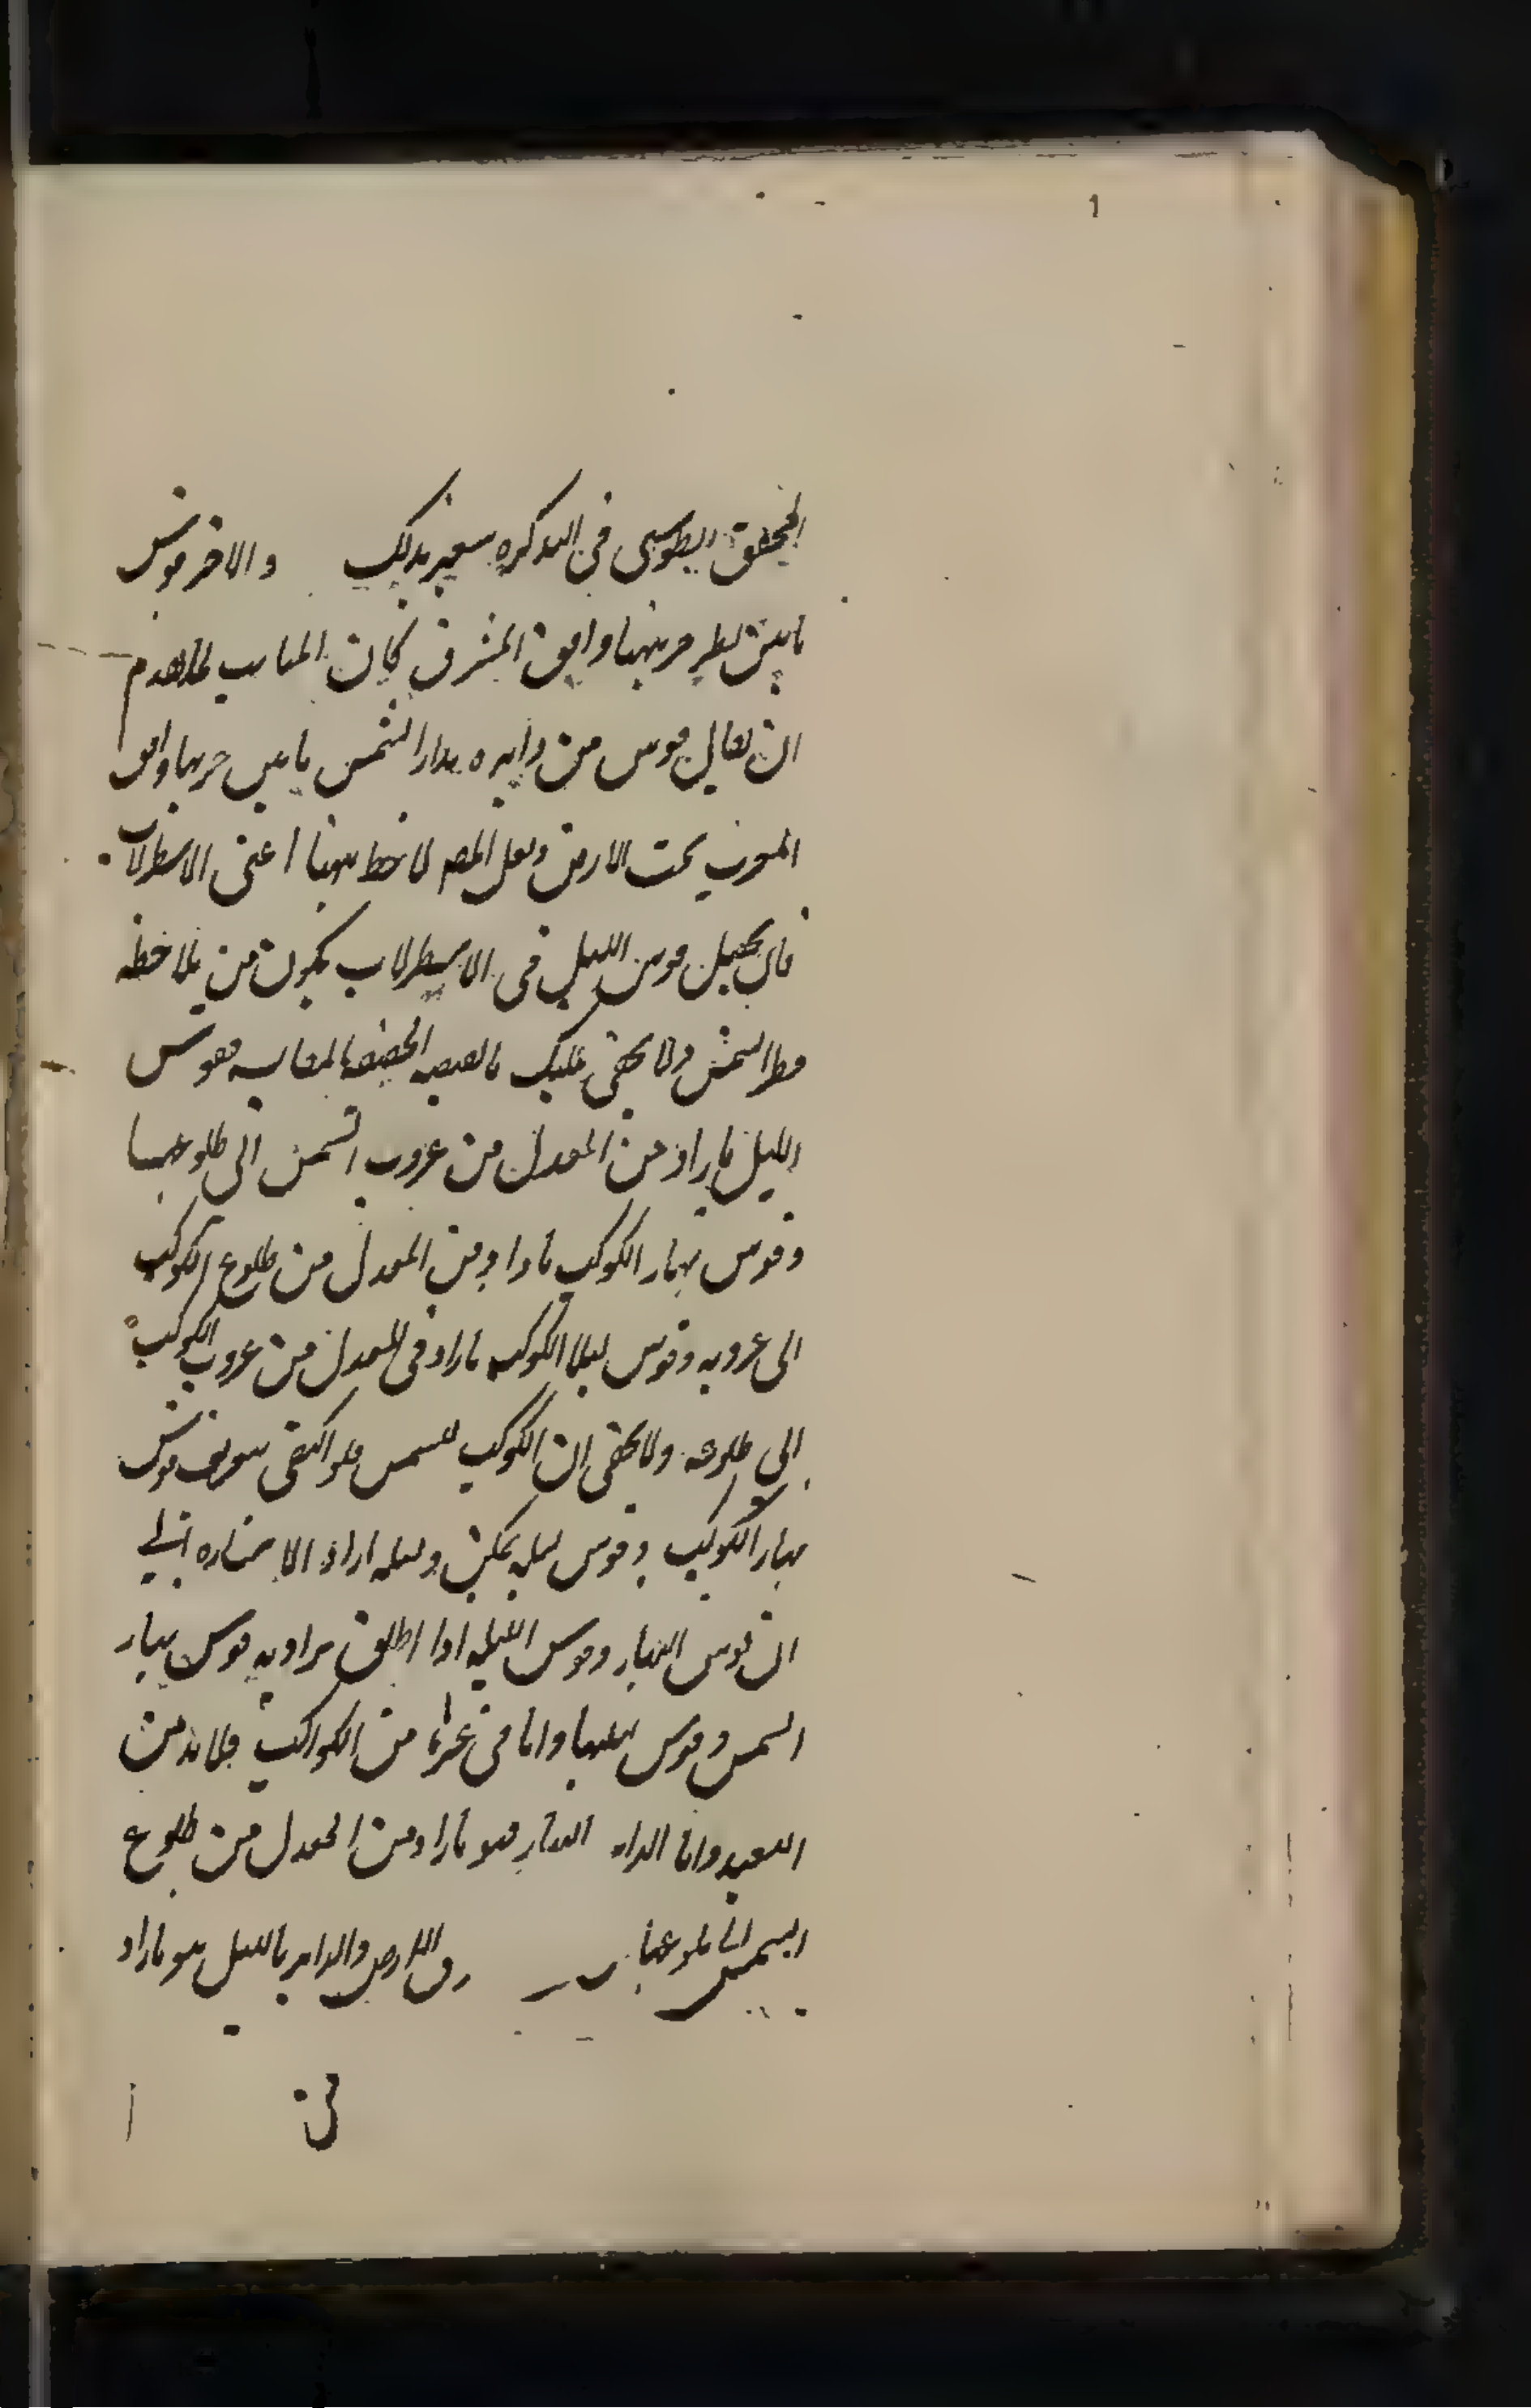 المحقق الطوسى فى التذكره بذلك والاخر قوس
ما بين نظير جزئها وافق المشرق كان المناسب لما تقدم
ان يقال قوس من دايره مدار الشمس ما بين جزئها وافق
المغرب تحت الارض ولعل المصـ لاحظ ههنا اعنى الاسطرلاب
فان تحصيل قوس الليل فى الاسطرلاب يكون من ملاحظه
الشمس ولا يخفى عليك المقايسه فقوس
الليل ما دار من المعدل من غروب الشمس الى طلوعها
وقوس نهار الكوكب ما دار من المعدل من طلوع الكوكب
الى غروبه وقوس ليل الكوكب ما دار من المعدل من غروب الكوكب
الى طلوعه ولا يخفى ان الكوكب الشمس فلو اكتفى بتعريف قوس
نهار الكوكب وقوس ليله يمكن ولعله اراد الاشاره الى
ان قوس النهار وقوس الليله اذا اطلق يراد به قوس نهار
الشمس وقوس ليلها واما فى غيرها من الكواكب فلا بد من
التقييد واما الداير فهو ما دار من المعدل من طلوع
الشمس الى فوق الارض والداير بالليل هو ما دار
من